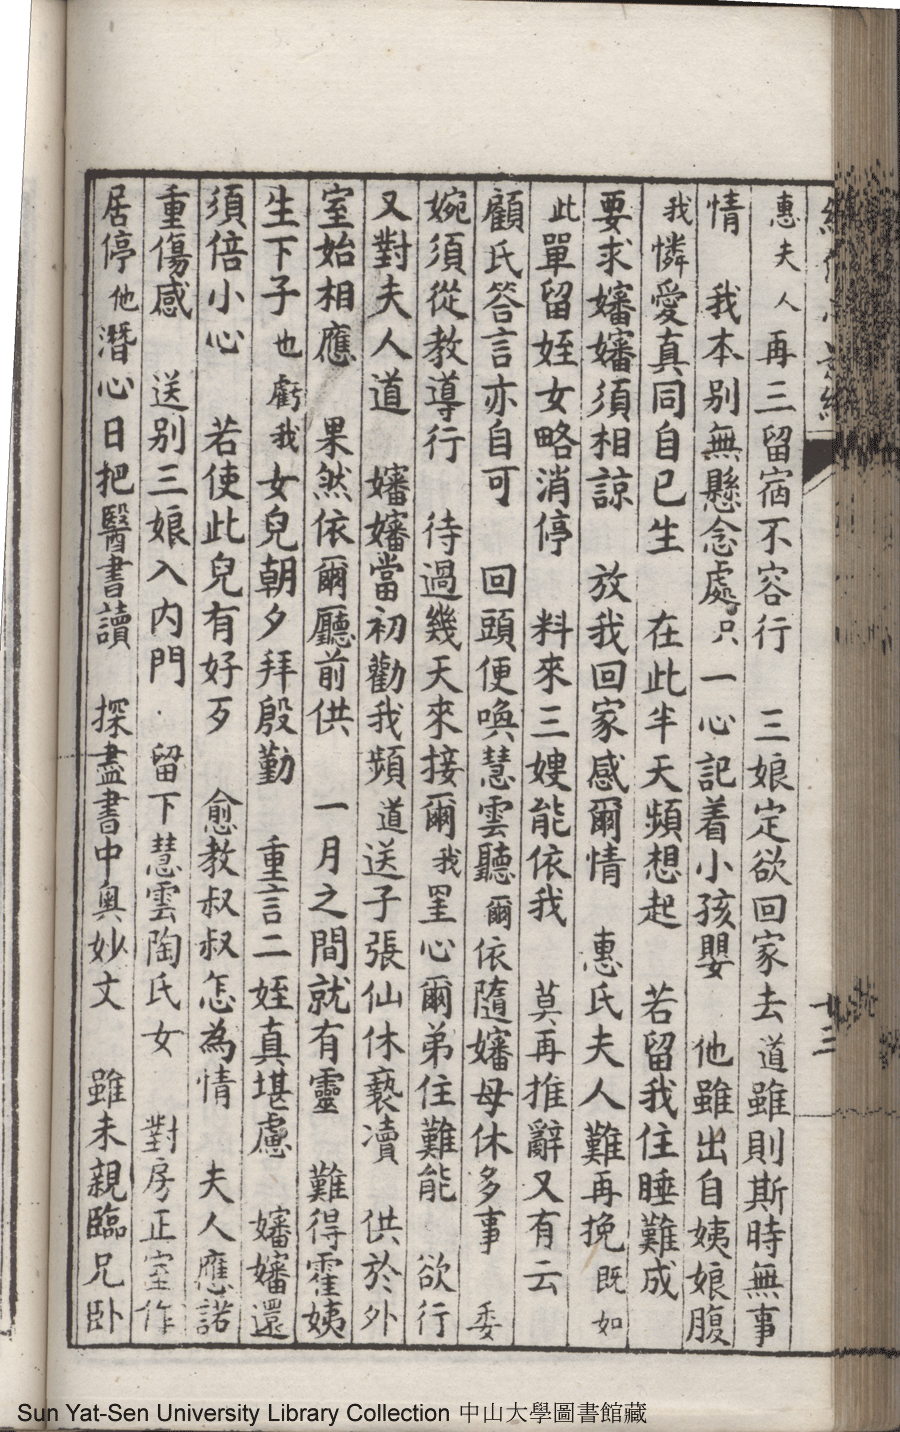 惠夫人再三留宿不容行　三娘定欲回家去道雖則斯時無事
情　我本别無懸念處只一心記着小孩嬰　他雖出自姨娘腹
我憐愛真同自已生　在此半天頻想起　若留我住睡難成
要求嬸嬸須相諒　放我回家感爾情　惠氏夫人難再挽既如
此單留姪女略消停　料來三嫂能依我　莫再推辭又有云
顧氏答言亦自可　回頭便喚慧雲聽爾依隨嬸母休多事　委
婉須從教導行　待過幾天來接爾我罣心爾弟住難能　欲行
又對夫人道　嬸嬸當初勸我頻道送子張仙休褻凟　供於外
室始相應　果然依爾廳前供　一月之間就有靈　難得霍姨
生下子也虧我女兒朝夕拜殷勤　重言二姪真堪慮　嬸嬸還
須倍小心　若使此兒有好歹　愈教叔叔怎為情　夫人應諾
重傷感　送别三娘入内門　留下慧雲陶氏女　對房正室作
居停他潛心日把醫書讀　探盡書中奥妙文　雖未親臨兄卧
廿三
Sun Yat-Sen University Library Collection 中山大學圖書館藏